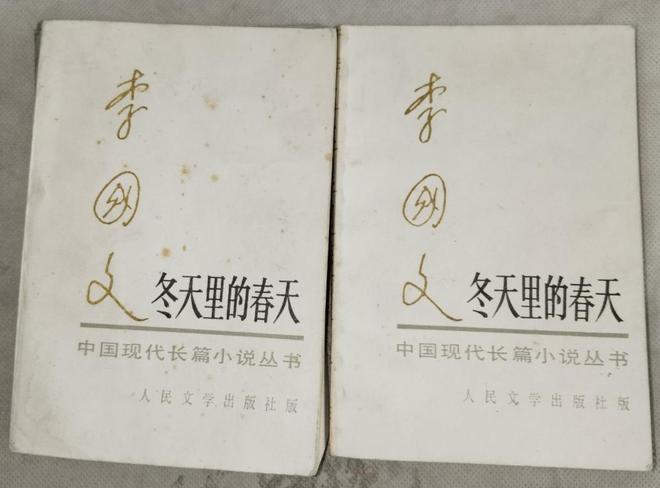 李国文
冬天里的春天
中国现代长篇小说丛书
人民文学出版社版
李国文
冬天里的春天
中国现代长篇小说丛书
人民文学出版社版